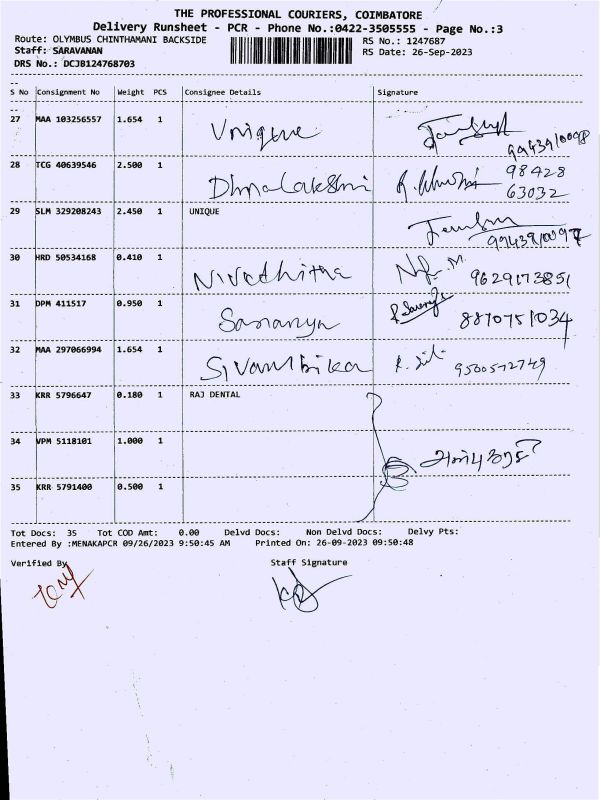 THE PROFESSIONAL COURIERS, COIMBATORE
Delivery Runsheet - PCR - Phone No.:0422-3505555 - Page No.:3
Route: OLYMBUS CHINTHAMANI BACKSIDE RS No.: 1247687
Staff: SARAVANAN RS Date: 26-Sep-2023
DRS No.: DCJB124768703
S No Consignment No Weight PCS Consignee Details Signature
27 MAA 103256557 1.654 1 Unique 9943910098
28 TCG 40639546 2.500 1 Dhnalakshmi 98428
63032
29 SLM 329208243 2.450 1 UNIQUE
30 HRD 50534168 0.410 1 Nivethitha 9629173851
31 DPM 411517 0.950 1 Saranya 8870751034
32 MAA 297066994 1.654 1 Sivambika 9500572749
33 KRR 5796647 0.180 1 RAJ DENTAL
34 VPM 5118101 1.000 1
35 KRR 5791400 0.500 1
Tot Docs: 35 Tot COD Amt: 0.00 Delvd Docs: Non Delvd Docs: Delvy Pts:
Entered By :MENAKAPCR 09/26/2023 9:50:45 AM Printed On: 26-09-2023 09:50:48
Verified By Staff Signature